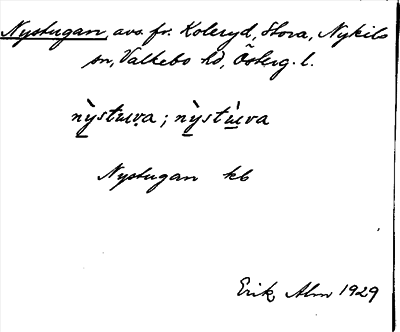 Nystugan, avs. fr. Koleryd, Stora, Nykils
sn, Valkebo hd, Österg. l.
nỳstuva; nỳstùva
Nystugan kb
Erik Alm 1929